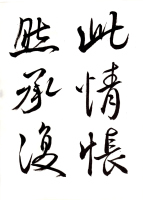 此情悵
然承復